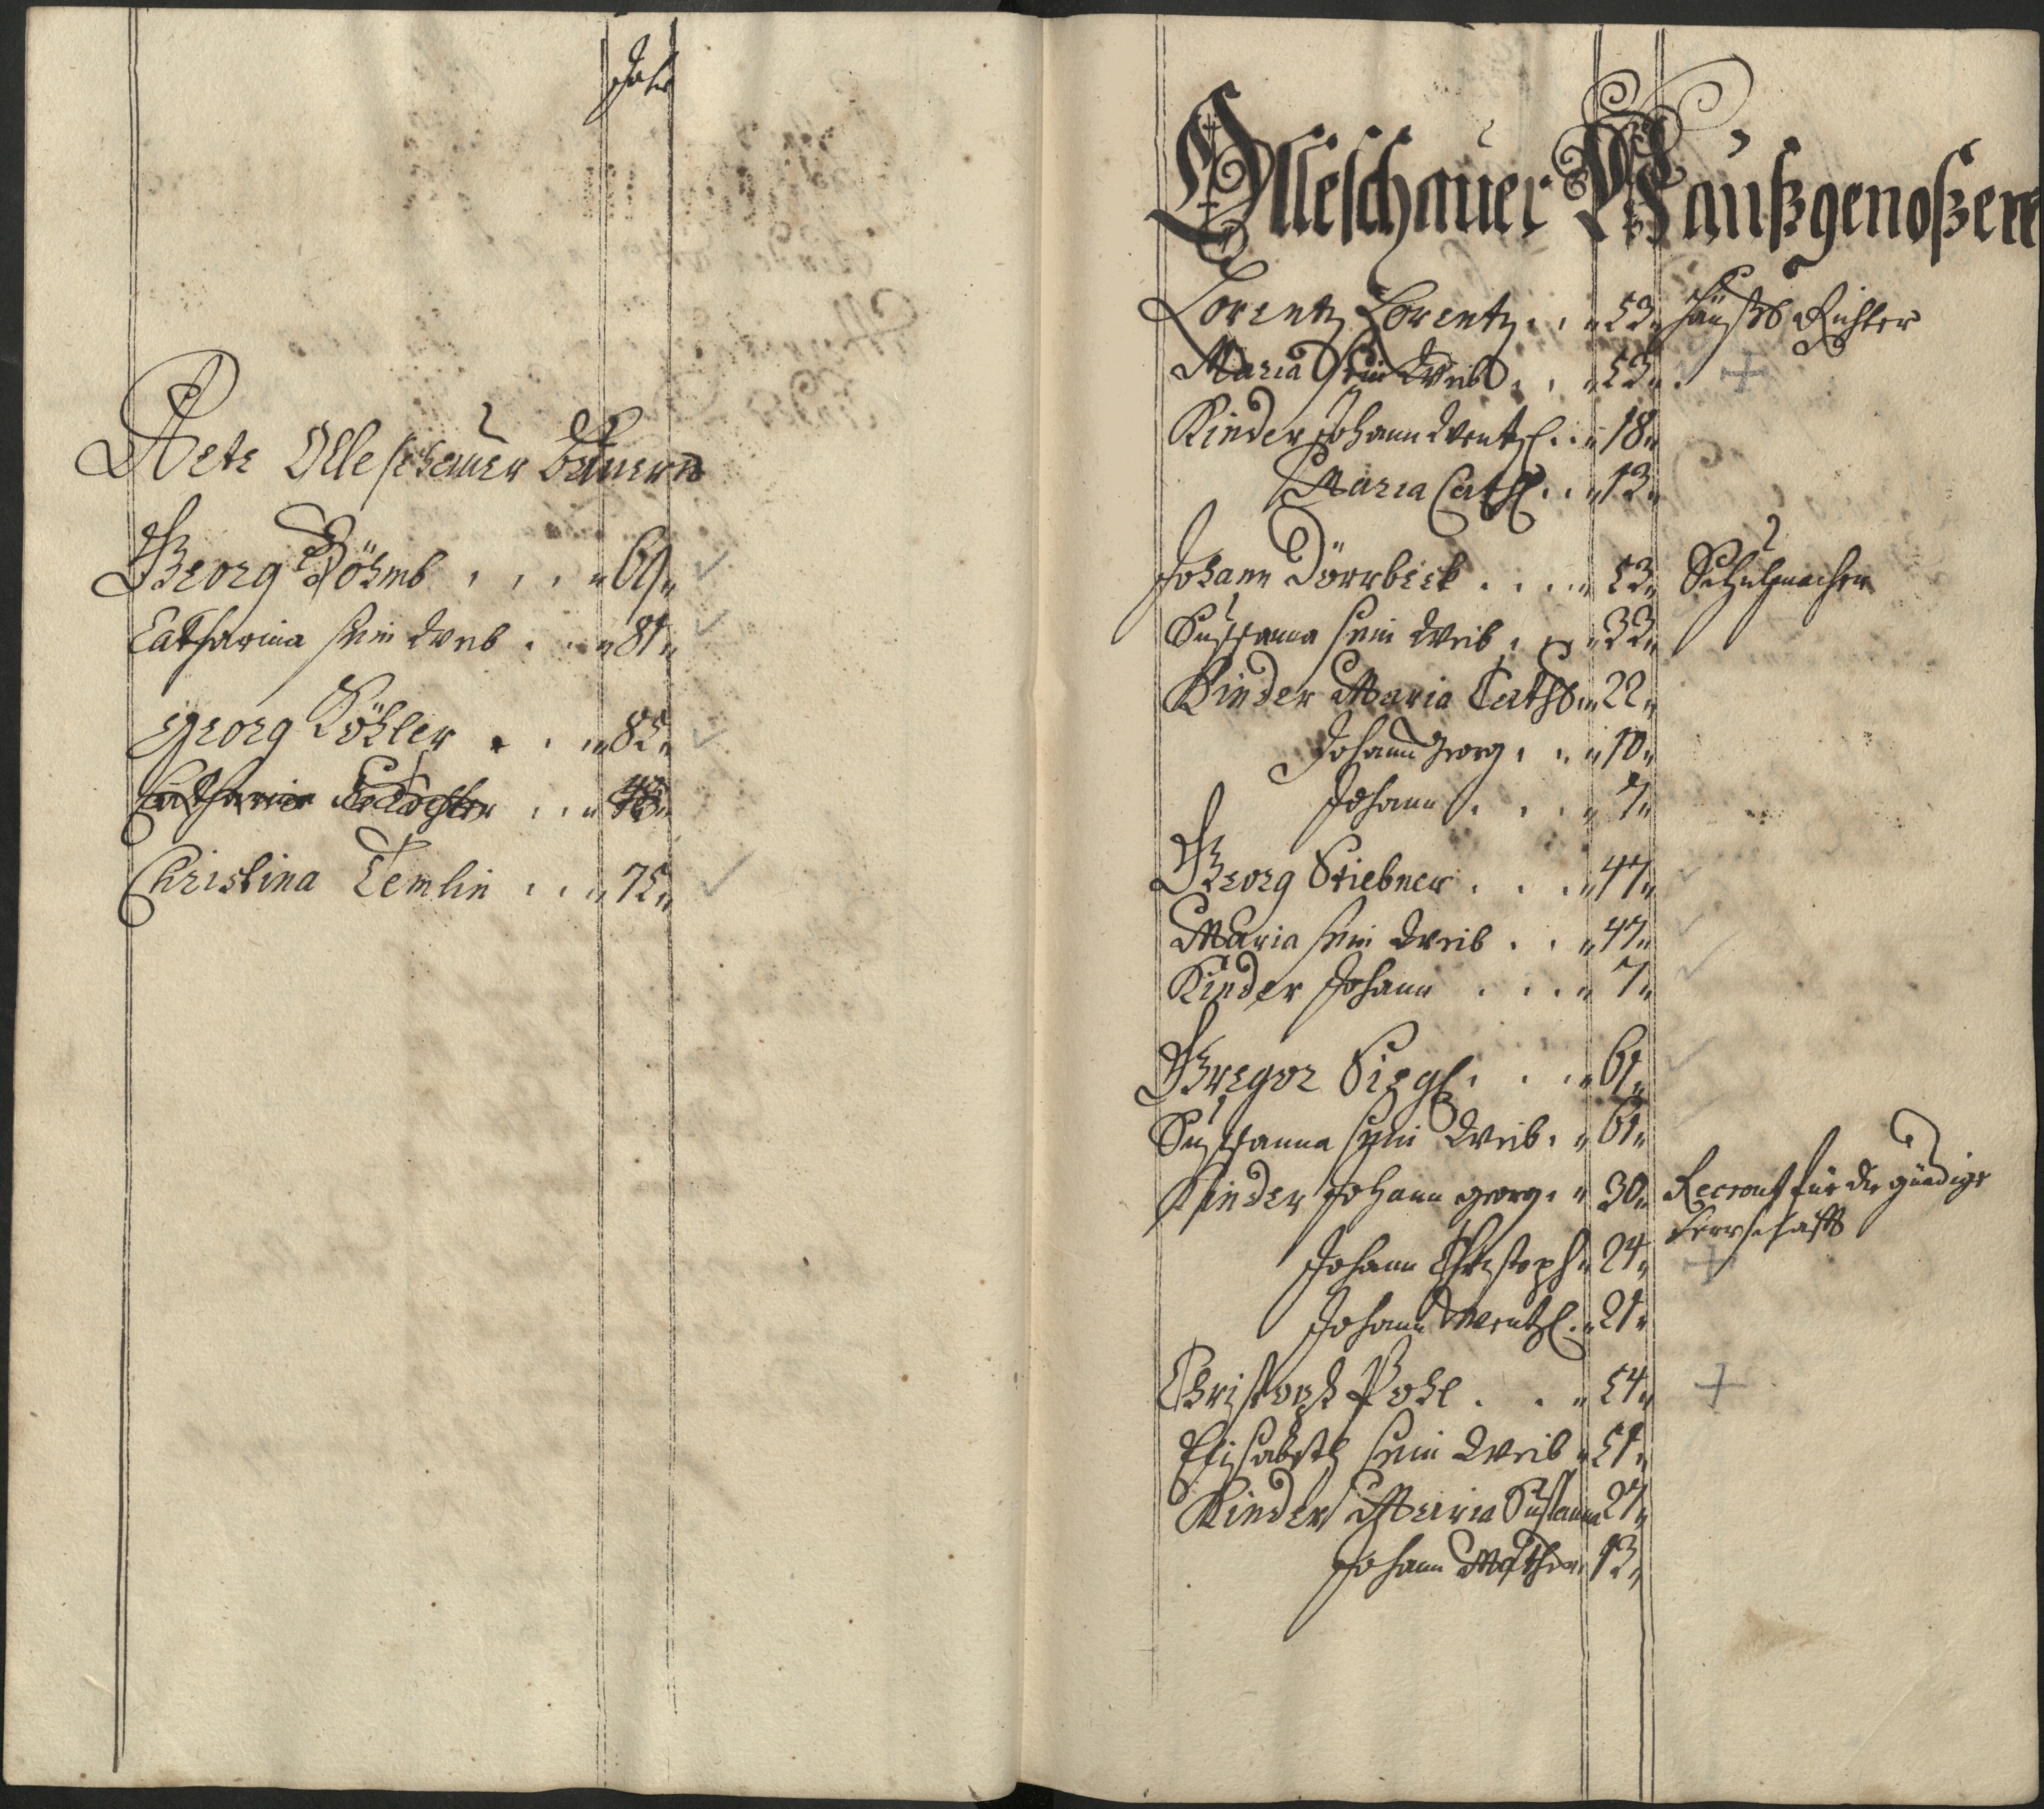 Jahr
Alte Olleschauer Bauern
Georg Böhmb . . . 69
Catharina sein Weib . . 81
Georg Köhler . . . 85
Catharina Tochter . . 43
Christina Temlin . . . 75
Olleschauer Haußgenoßen
Lorentz Lorentz . . 53 Richter
Maria sein Weib . . 53 +
Kinder Johann Wentzl . . 18
Maria Cathl . . 13
Johann Dörrbeck . . . . 53 Schuhmacher
Susanna sein Weib . . 33
Kinder Maria Cath 22
Johann Georg . . 10
Johann . . . 7
Georg Stiebner . . . 47
Maria sein Weib . . 47
Kinder Johann . . . 7
Gregor Siegl . . . 61
Susanna sein Weib . 61
Kinder Johann Georg . 30 Recrout für die gnädige
Herrschafft
Johann Christoph 24 +
Johann Wentzl . 21
Christoph Pohl . . 54 +
Elisabeth sein Weib 51
Kinder Maria Susanna 27
Johann 13